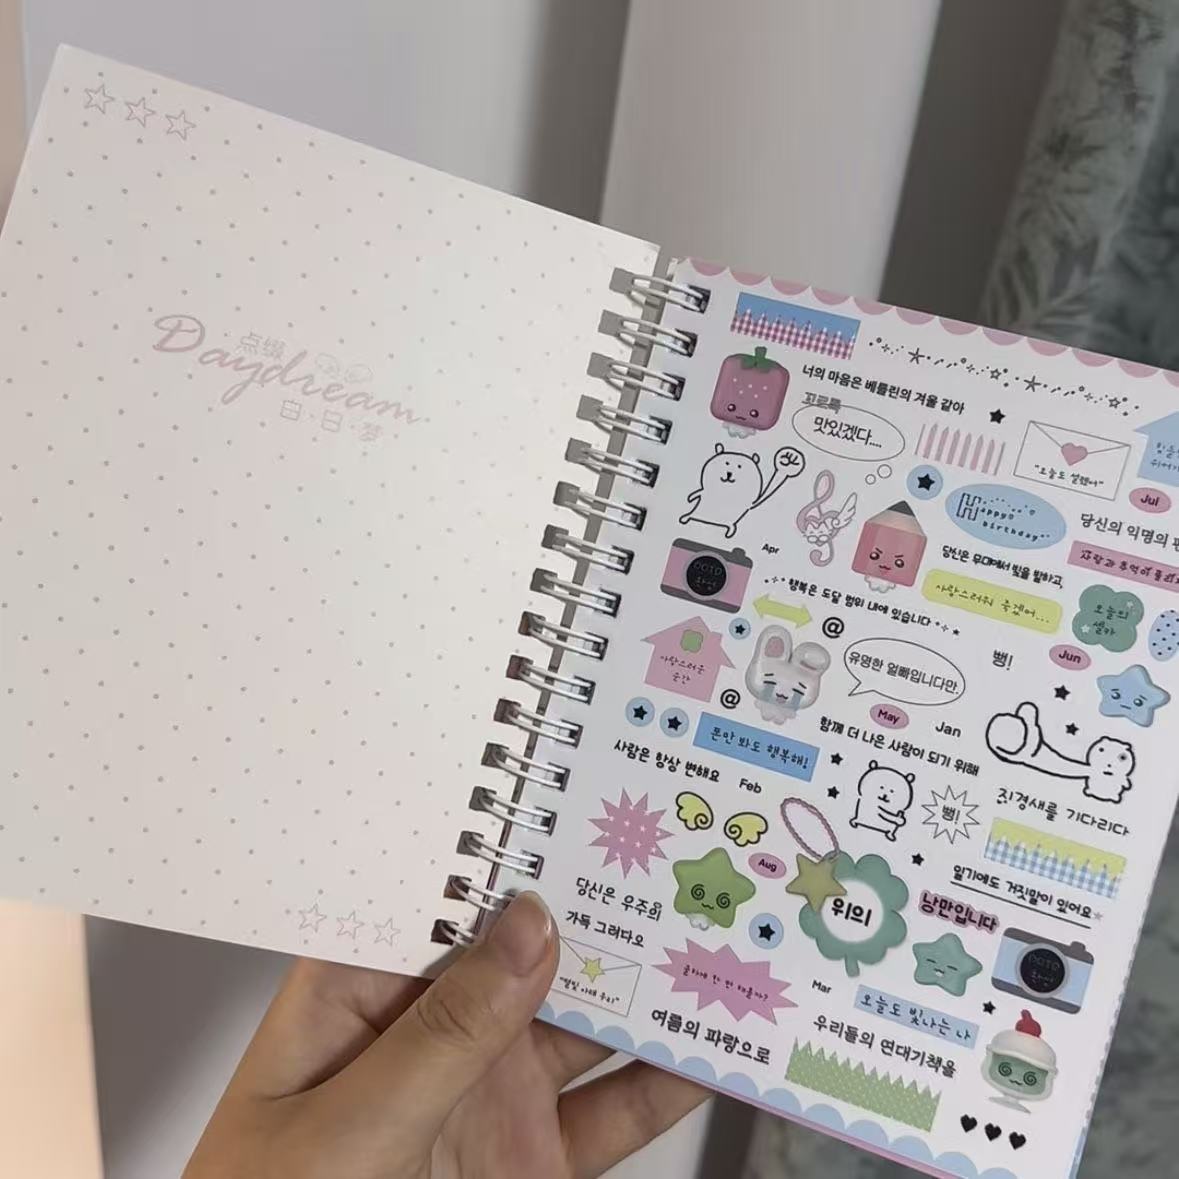 点缀
Daydream
白·日·梦
너의 마음은 베를린의 겨울 같아
꼬르륵
맛있겠다....
"오늘도 설렜어"
Jul
Happy
birthday
당신의 익명의
당신은 무대에서 빛을 발하고,
사랑스러워 죽겠어...
사랑과 추억이
오늘의
셀카
Apr
OOTD
행복은 도달 범위 내에 있습니다
@
사랑스러운
순간
유명한 얼빠입니다만.
뻥!
Jun
@
May
Jan
폰만 봐도 행복해!
함께 더 나은 사람이 되기 위해
사람은 항상 변해요
Feb
뻥!
진경새를 기다리다
Aug
일기에도 거짓말이 있어요
당신은 우주의
위의
낭만입니다
가득 그려다오
"별빛 아래 우리"
Mar
오늘도 빛나는 나
여름의 파랑으로
우리들의 연대기책을